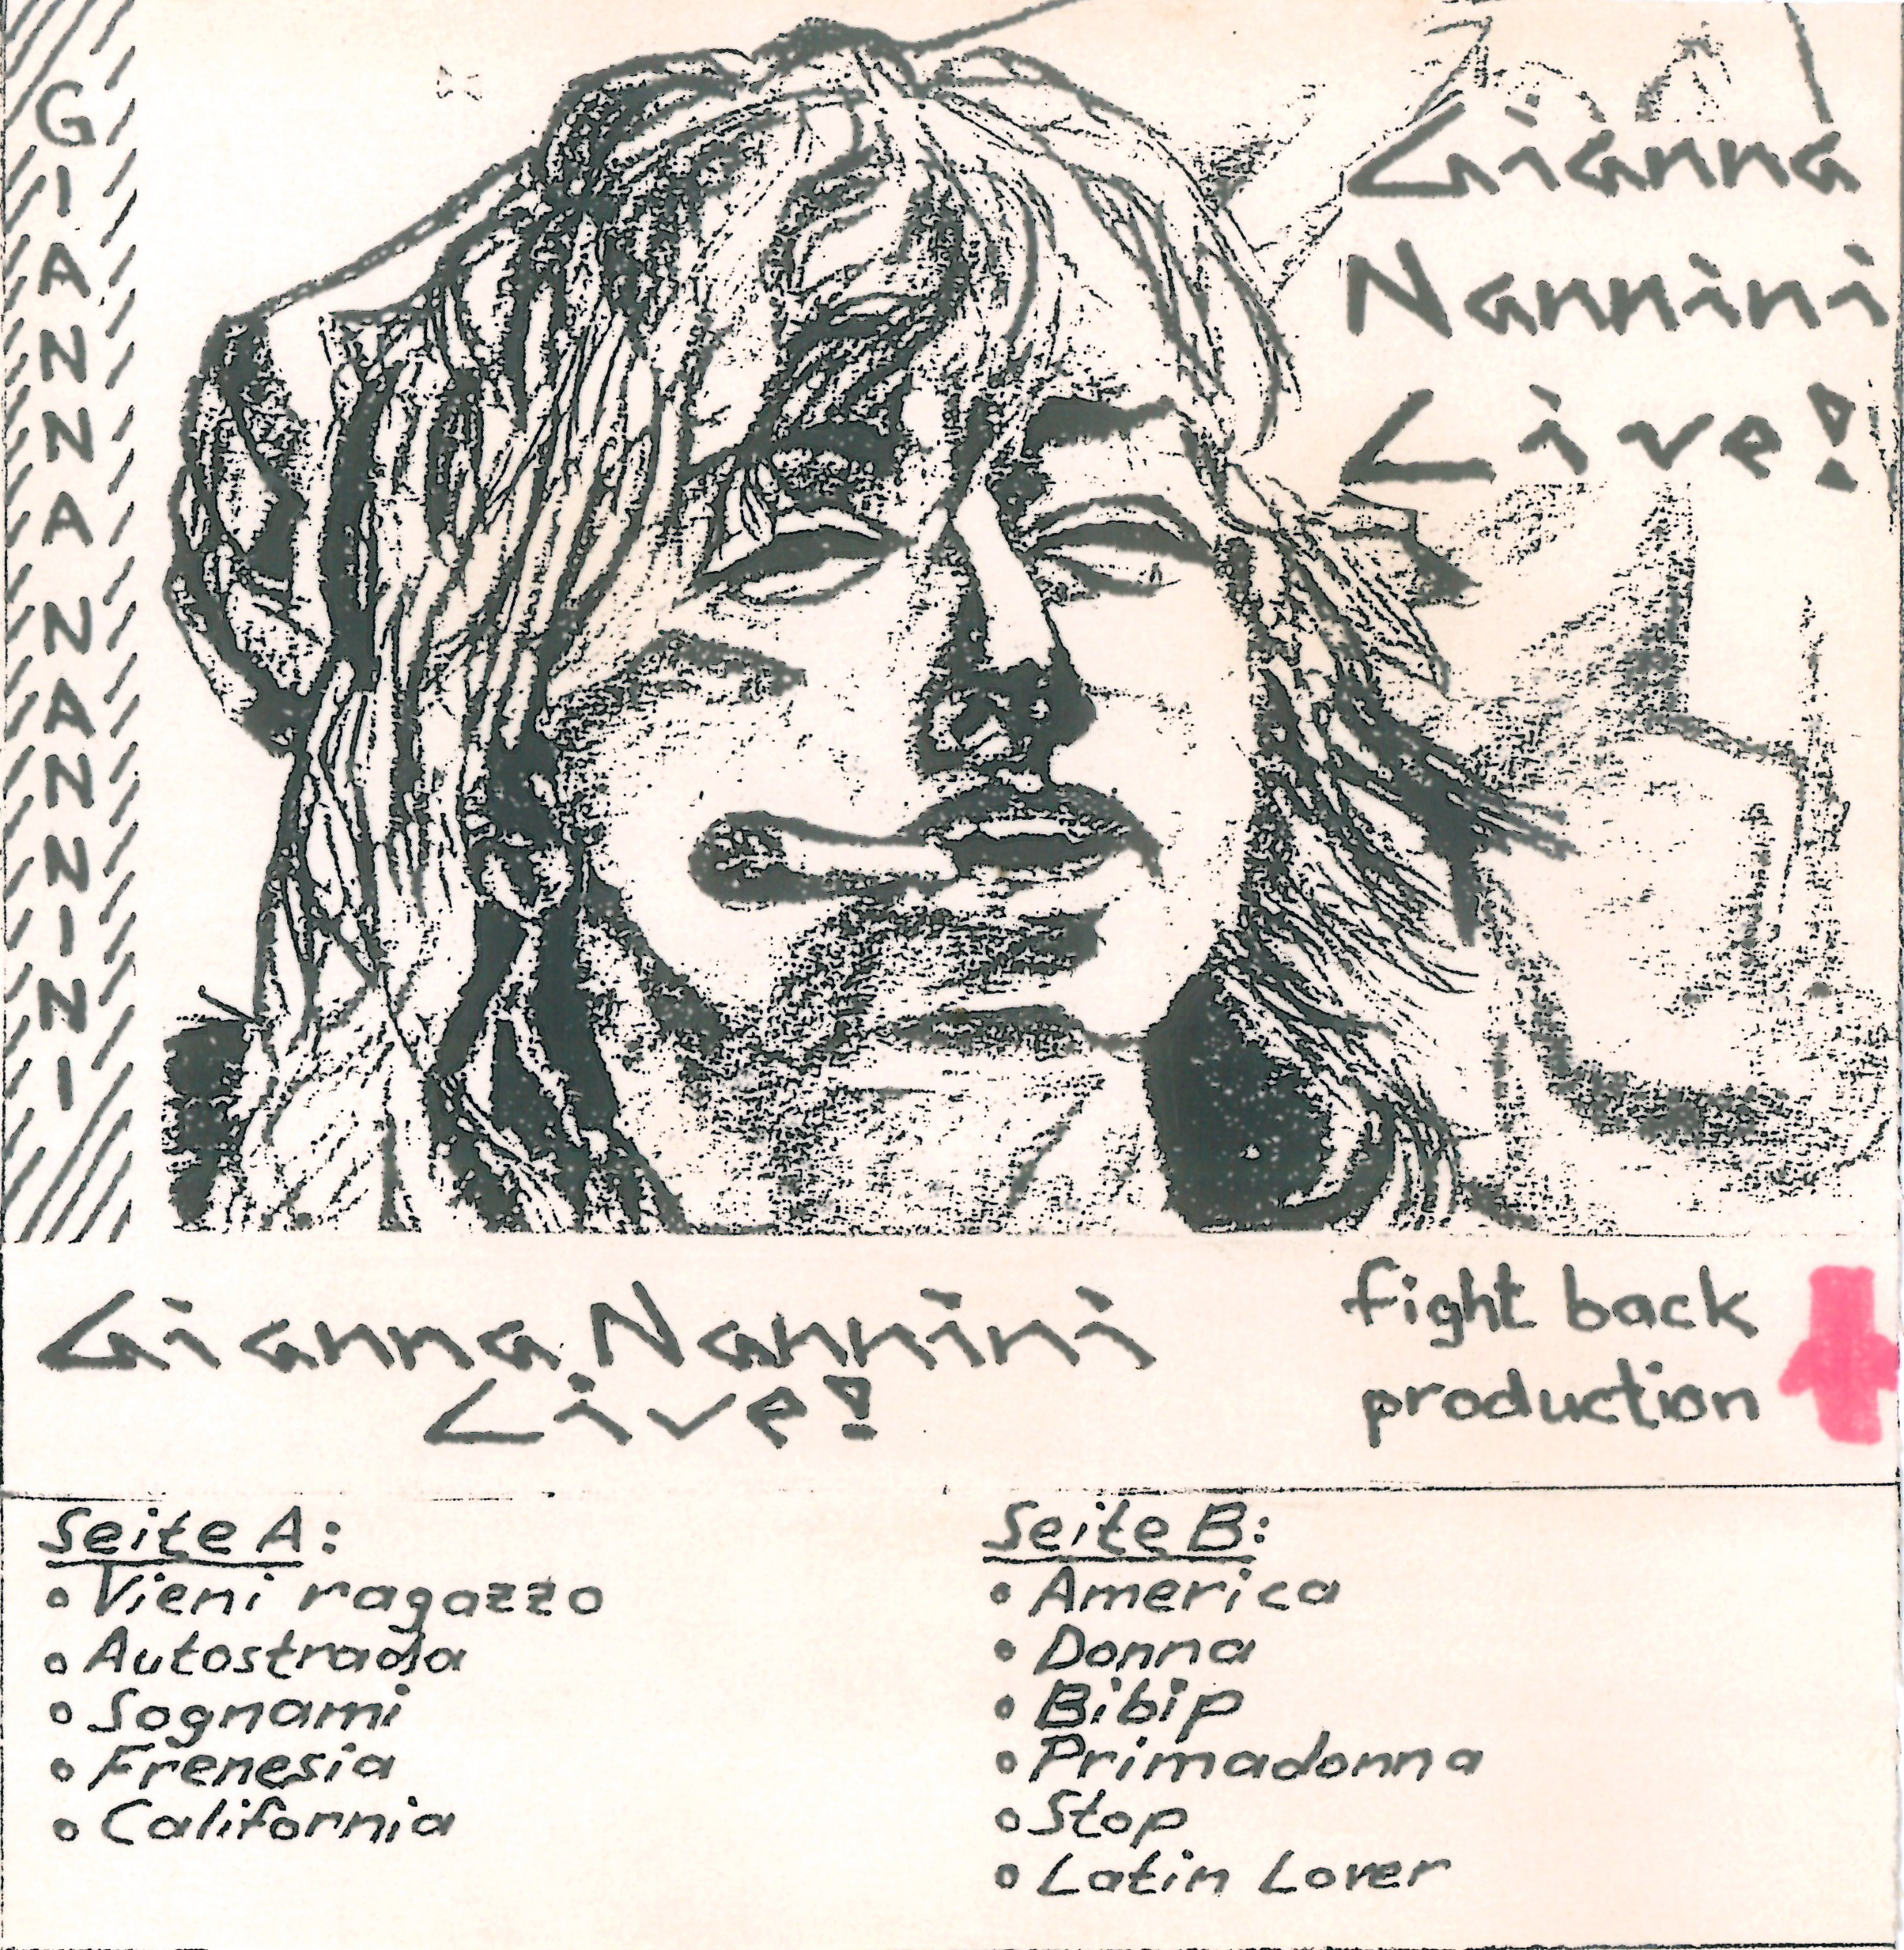 GIANNA NANNINI
Gianna
Nannini
Live!
Gianna Nannini
Live!
fight back
production
Seite A:
• Vieni ragazzo
• Autostrada
• Sognami
• Frenesia
• California
Seite B:
• America
• Donna
• Bibip
• Primadonna
• Stop
• Latin Lover